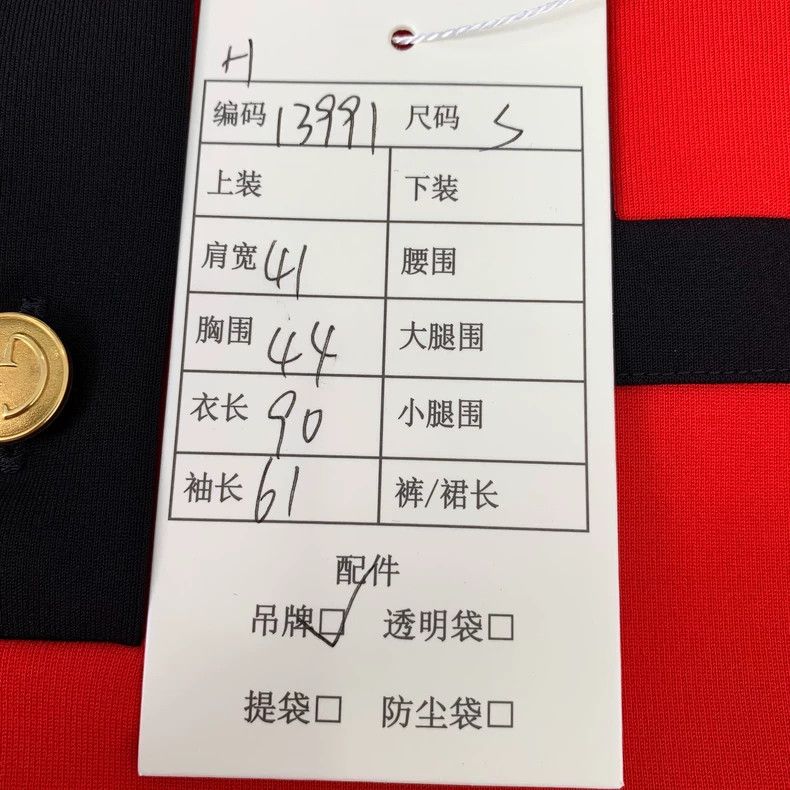 H
编码 13991 尺码 S
上装 下装
肩宽 41 腰围
胸围 44 大腿围
衣长 90 小腿围
袖长 61 裤/裙长
配件
吊牌☑ 透明袋□
提袋□ 防尘袋□